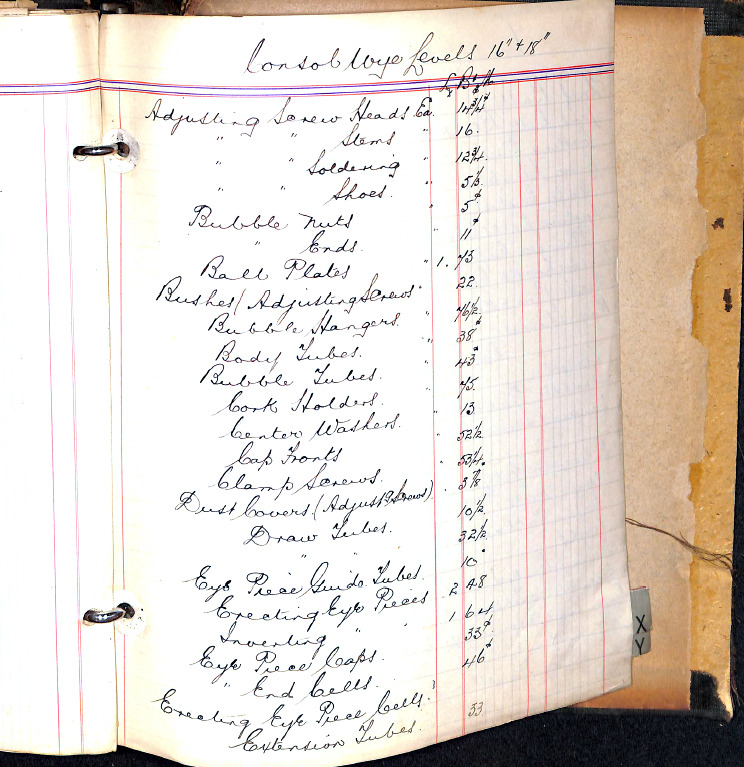 Consol Wye Levels 16" & 18"
Adjusting Screw Heads Ea. 14 3/4¢
" " Stems " 16.
" " Soldering " 12 3/4
" " Shoes. " 5 1/8
Bubble Nuts 5¢
" Ends. " 11¢
Ball Plates " 1.73
Bushes (Adjusting Screws " 22.
Bubble Hangers. " 76 1/2
Body Tubes. " 38¢
Bubble Tubes. " 43¢
Cork Holders. " 75.
Center Washers. " 13
Cap Fronts " 52 1/2
Clamp Screws. 53 1/4.
Dust Covers (Adjustg Screws) 3 7/8
Draw Tubes. 10 1/2
" " 32 1/2
Eye Piece Guide Tubes. 10
Erecting Eye Pieces 2 48
Inverting " " 1 64
Eye Piece Caps. 33¢
" End Cells. 46¢
Erecting Eye Piece Cells.
Extension Tubes. 33
X
Y